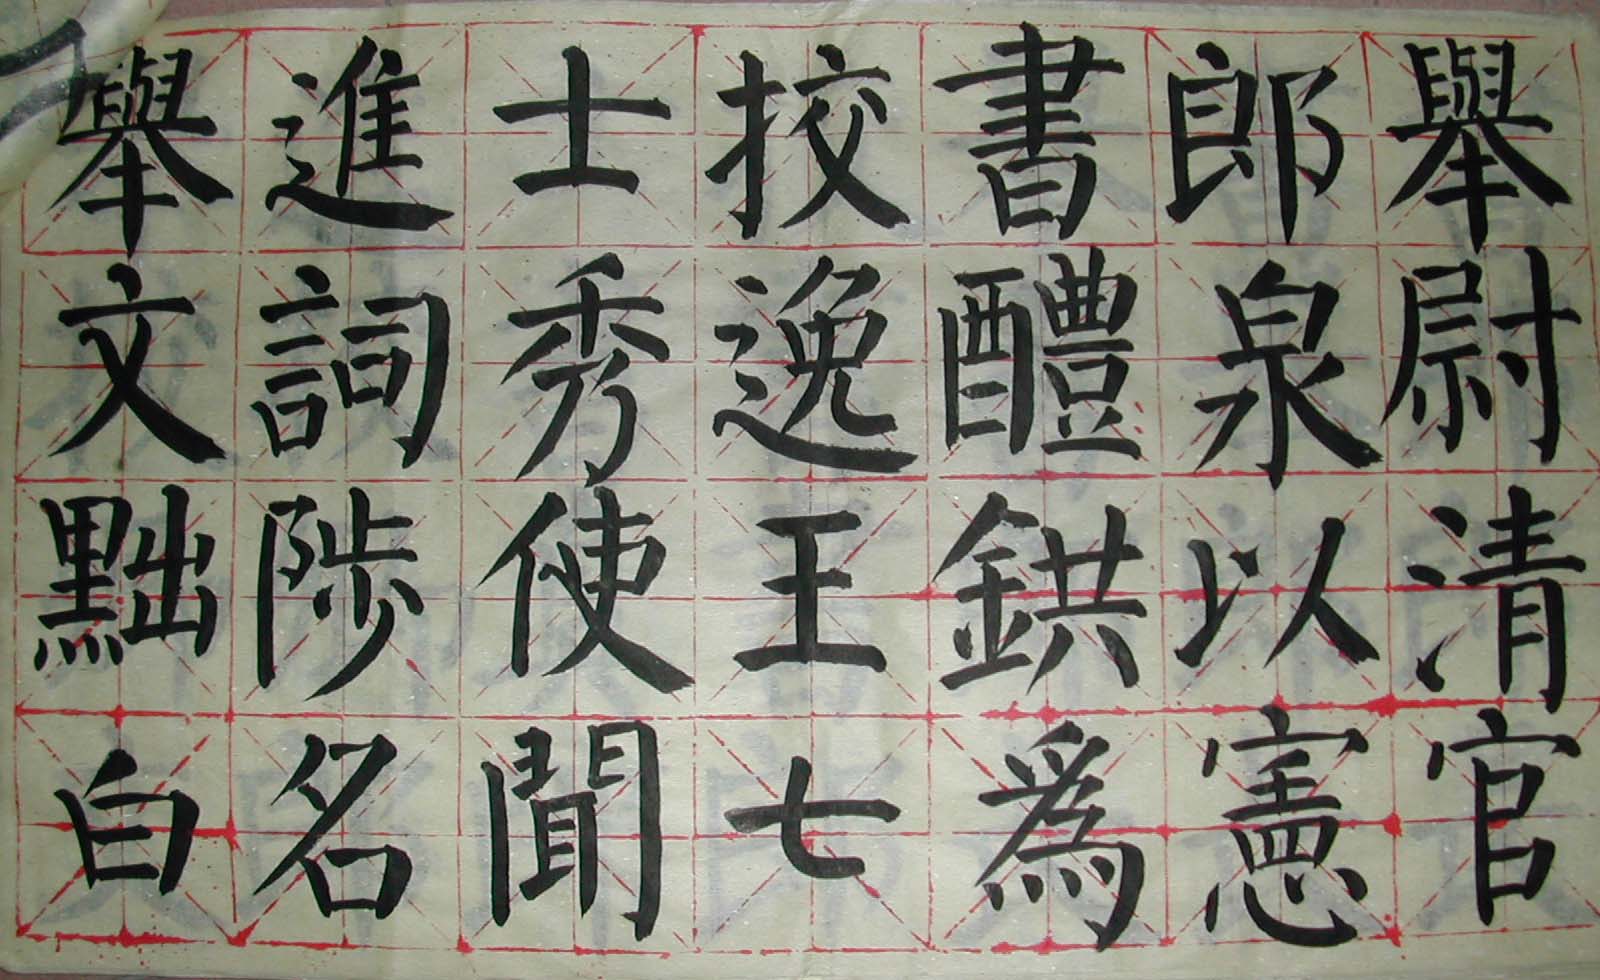 舉進士挍書郎舉
文詞秀逸醴泉尉
黜陟使王鉷以清
白名聞七爲憲官